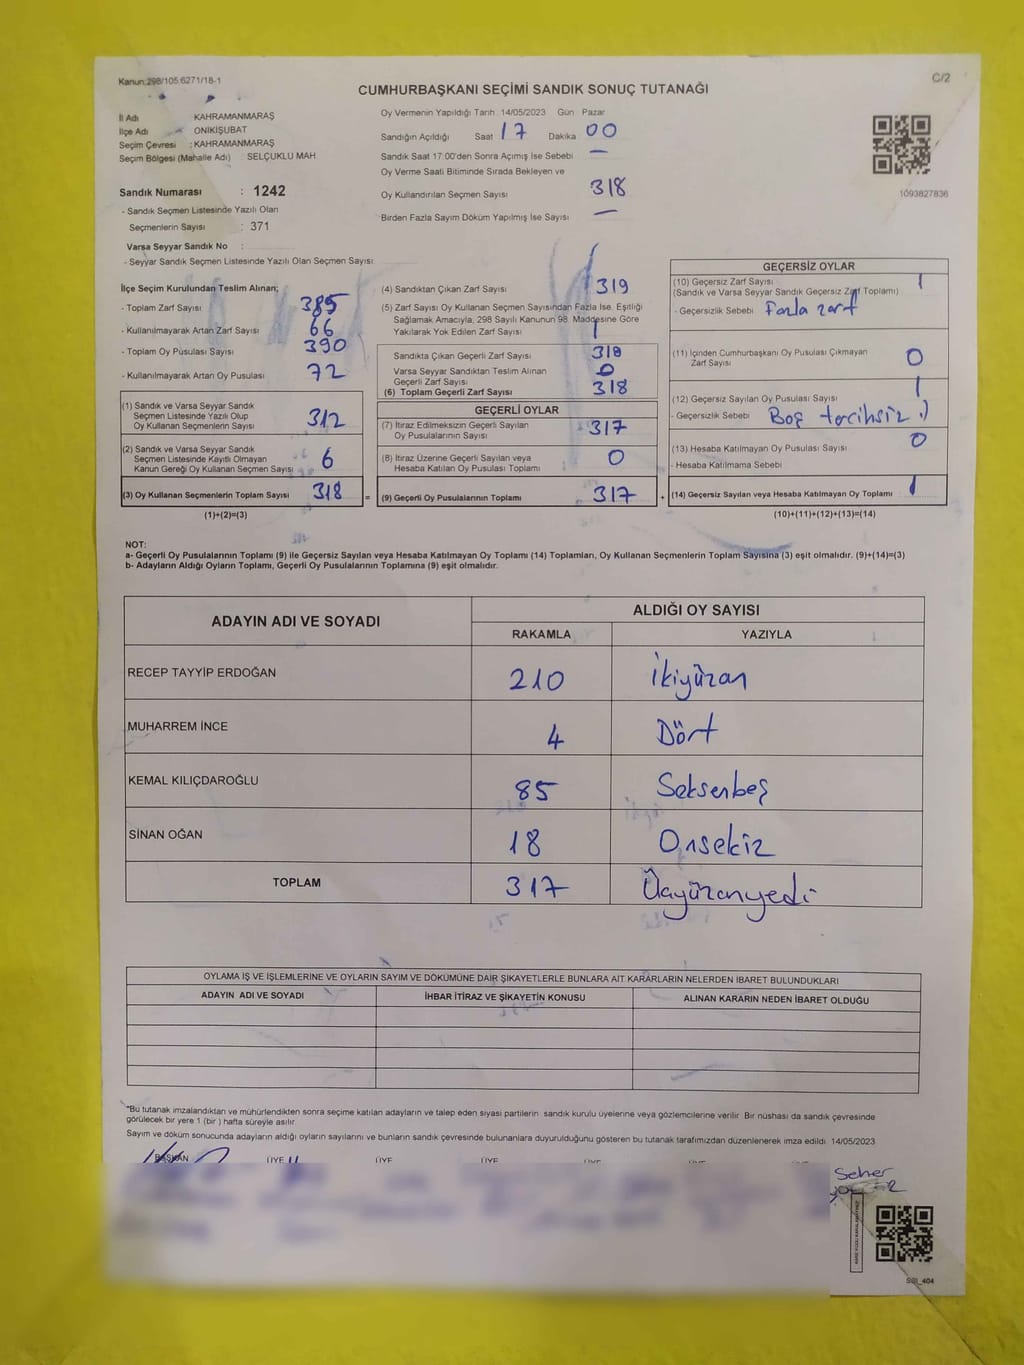 Kanun:298/105.6271/18-1
C/2
CUMHURBAŞKANI SEÇİMİ SANDIK SONUÇ TUTANAĞI
İl Adı KAHRAMANMARAŞ
İlçe Adı ONİKİŞUBAT
Seçim Çevresi : KAHRAMANMARAŞ
Seçim Bölgesi (Mahalle Adı) : SELÇUKLU MAH
Sandık Numarası : 1242
- Sandık Seçmen Listesinde Yazılı Olan
Seçmenlerin Sayısı : 371
Varsa Seyyar Sandık No :
- Seyyar Sandık Seçmen Listesinde Yazılı Olan Seçmen Sayısı:
Oy Vermenin Yapıldığı Tarih 14/05/2023 Gün Pazar
Sandığın Açıldığı Saat 17 Dakika 00
Sandık Saat 17:00'den Sonra Açımış İse Sebebi —
Oy Verme Saati Bitiminde Sırada Bekleyen ve
Oy Kullandırılan Seçmen Sayısı 318
Birden Fazla Sayım Döküm Yapılmış İse Sayısı —
1093827836
İlçe Seçim Kurulundan Teslim Alınan;
- Toplam Zarf Sayısı 385
- Kullanılmayarak Artan Zarf Sayısı 66
- Toplam Oy Pusulası Sayısı 390
- Kullanılmayarak Artan Oy Pusulası 72
(1) Sandık ve Varsa Seyyar Sandık
Seçmen Listesinde Yazılı Olup
Oy Kullanan Seçmenlerin Sayısı 312
(2) Sandık ve Varsa Seyyar Sandık
Seçmen Listesinde Kayıtlı Olmayan
Kanun Gereği Oy Kullanan Seçmen Sayısı 6
(3) Oy Kullanan Seçmenlerin Toplam Sayısı 318 =
(1)+(2)=(3)
(4) Sandıktan Çıkan Zarf Sayısı 319
(5) Zarf Sayısı Oy Kullanan Seçmen Sayısından Fazla İse, Eşitliği
Sağlamak Amacıyla, 298 Sayılı Kanunun 98. Maddesine Göre
Yakılarak Yok Edilen Zarf Sayısı 1
Sandıkta Çıkan Geçerli Zarf Sayısı 318
Varsa Seyyar Sandıktan Teslim Alınan
Geçerli Zarf Sayısı 0
(6) Toplam Geçerli Zarf Sayısı 318
GEÇERLİ OYLAR
(7) İtiraz Edilmeksizin Geçerli Sayılan
Oy Pusulalarının Sayısı 317
(8) İtiraz Üzerine Geçerli Sayılan veya
Hesaba Katılan Oy Pusulası Toplamı 0
(9) Geçerli Oy Pusulalarının Toplamı 317 +
GEÇERSİZ OYLAR
(10) Geçersiz Zarf Sayısı 1
(Sandık ve Varsa Seyyar Sandık Geçersiz Zarf Toplamı)
- Geçersizlik Sebebi Fazla zarf
(11) İçinden Cumhurbaşkanı Oy Pusulası Çıkmayan
Zarf Sayısı 0
(12) Geçersiz Sayılan Oy Pusulası Sayısı 1
- Geçersizlik Sebebi Boş tercihsiz
(13) Hesaba Katılmayan Oy Pusulası Sayısı 0
- Hesaba Katılmama Sebebi
(14) Geçersiz Sayılan veya Hesaba Katılmayan Oy Toplamı 1
(10)+(11)+(12)+(13)=(14)
NOT:
a- Geçerli Oy Pusulalarının Toplamı (9) ile Geçersiz Sayılan veya Hesaba Katılmayan Oy Toplamı (14) Toplamları, Oy Kullanan Seçmenlerin Toplam Sayısına (3) eşit olmalıdır. (9)+(14)=(3)
b- Adayların Aldığı Oyların Toplamı, Geçerli Oy Pusulalarının Toplamına (9) eşit olmalıdır.
ADAYIN ADI VE SOYADI
ALDIĞI OY SAYISI
RAKAMLA YAZIYLA
RECEP TAYYİP ERDOĞAN 210 İkiyüzon
MUHARREM İNCE 4 Dört
KEMAL KILIÇDAROĞLU 85 Seksenbeş
SİNAN OĞAN 18 Onsekiz
TOPLAM 317 Üçyüzonyedi
OYLAMA İŞ VE İŞLEMLERİNE VE OYLARIN SAYIM VE DÖKÜMÜNE DAİR ŞİKAYETLERLE BUNLARA AİT KARARLARIN NELERDEN İBARET BULUNDUKLARI
ADAYIN ADI VE SOYADI İHBAR İTİRAZ VE ŞİKAYETİN KONUSU ALINAN KARARIN NEDEN İBARET OLDUĞU
"Bu tutanak imzalandıktan ve mühürlendikten sonra seçime katılan adayların ve talep eden siyasi partilerin sandık kurulu üyelerine veya gözlemcilerine verilir. Bir nüshası da sandık çevresinde
görülecek bir yere 1 (bir) hafta süreyle asılır.
Sayım ve döküm sonucunda adayların aldığı oyların sayılarını ve bunların sandık çevresinde bulunanlara duyurulduğunu gösteren bu tutanak tarafımızdan düzenlenerek imza edildi. 14/05/2023
BAŞKAN ÜYE ÜYE ÜYE
Seher
SSI_404